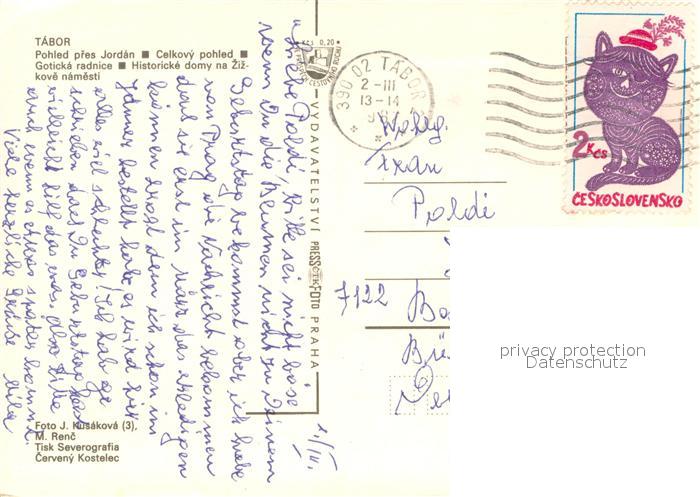 TÁBOR
Pohled přes Jordán ■ Celkový pohled ■
Gotická radnice ■ Historické domy na Žiž-
kově náměstí
Kčs 0,20
VYDAVATELSTVÍ PRESSFOTO PRAHA
390 02 TÁBOR
2-III
13-14
2 Kčs
ČESKOSLOVENSKO
Frau
Poldi
7122
liebe Poldi, bitte sei nicht böse
wenn Du die nicht zu Deinem
Geburtstag bekommst aber ich habe
von Prag die Nachricht bekommen
daß sie erst im März das erledigen
können trotzdem ich schon im
Jänner bestellt habe es wird hier
alles viel schlechter! Ich habe
geschrieben das Du Geburtstag hast
vielleicht hilft das was. Also bitte
auch wenn es etwas später kommt.
Viele herzliche Grüße
privacy protection
Datenschutz
Foto J. Kusáková (3),
M. Renč
Tisk Severografia
Červený Kostelec